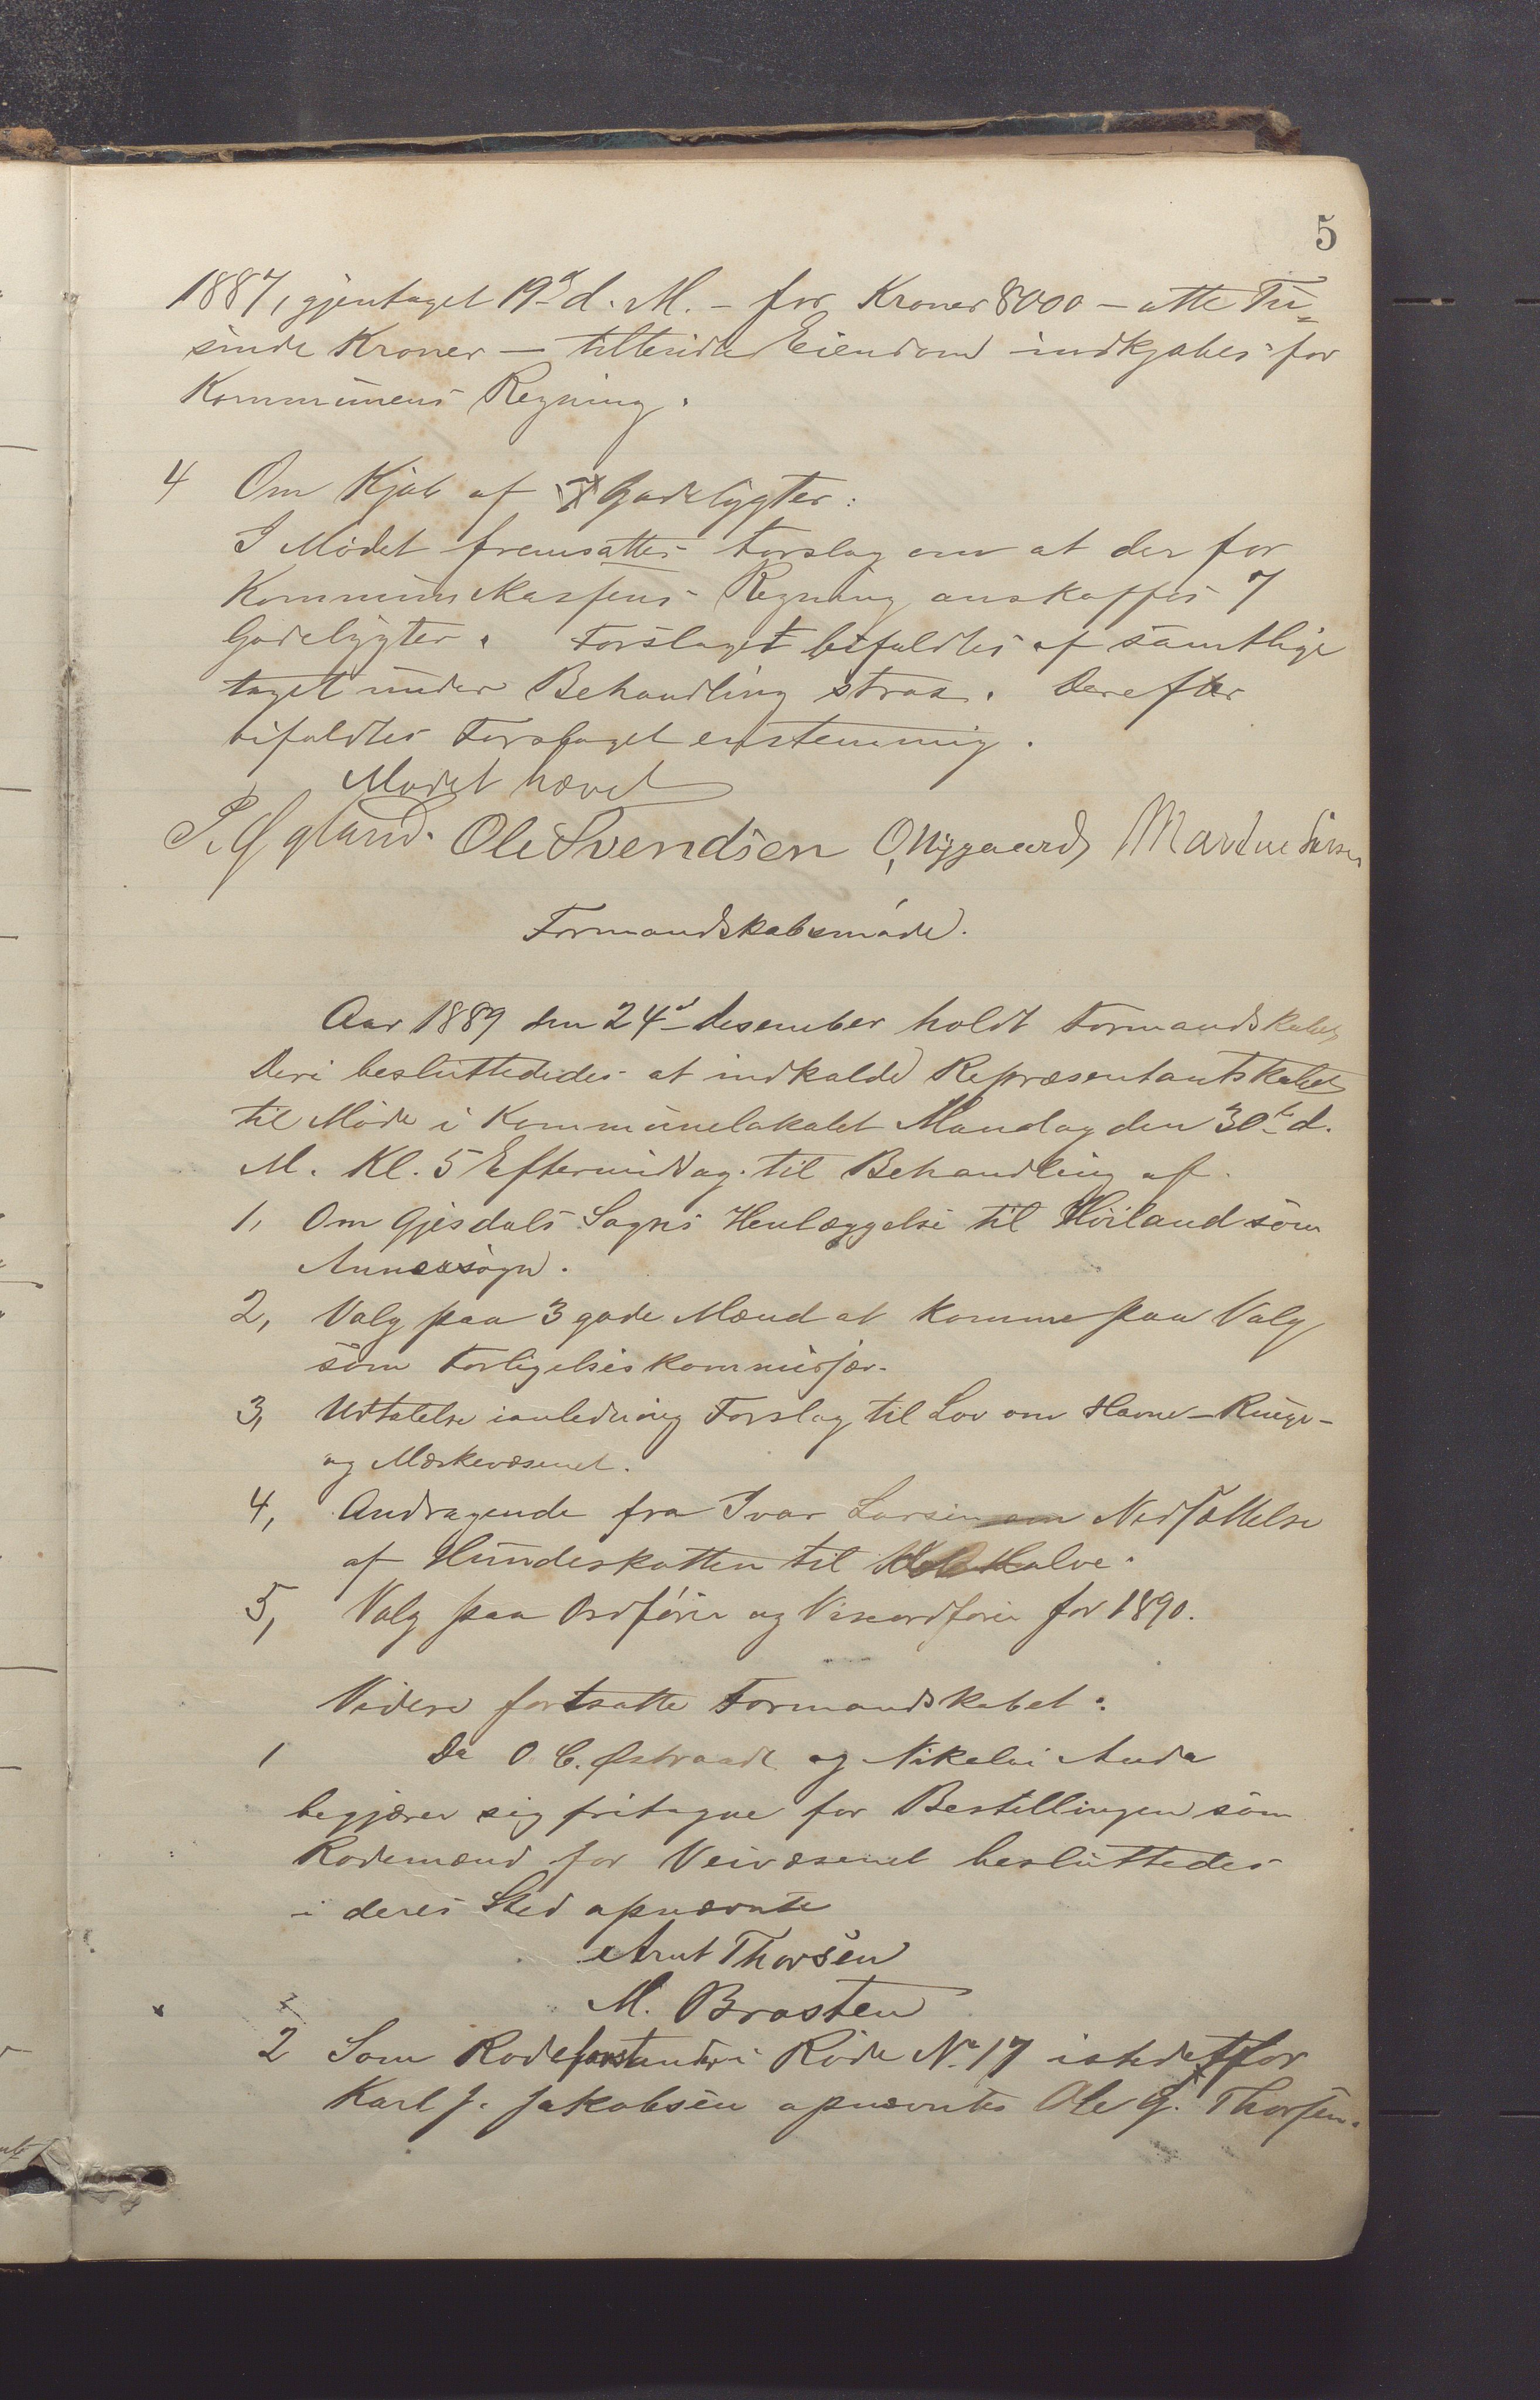 5
1887, gjentaget 19d d. M. – for Kroner 8000 – otte Tu=
sinde Kroner – Eiendom indkjøbes for
Kommunens Regning.
4 Om Kjøb af 7 Gadelygter:
I Mødet fremsattes Forslag om at der for
Kommunekassens Regning anskaffes 7
Gadelygter. Forslaget bifaldtes af samtlige
taget under Behandling strax. Derefter
bifaldtes Forslaget enstemmig.
Mødet hævet
Ole Svendsen O, Nygaard
Formandskabsmøde.
Aar 1889 den 24d Desember holdt Formandskabet
Deri besluttededes at indkalde Repræsentantskabet
til Møde i Kommunelokalet Mandag den 30te d.
M. Kl. 5 Eftermiddag til Behandling af
1, Om Gjesdals Sogns Henlæggelse til Høiland som
Annexsogn.
2, Valg paa 3 gode Mænd at komme paa Valg
som Forligelseskommissær.
3, Udtalelse ianledning Forslag til Lov om Havne-
og Merkevæsenet.
4, Andragende fra Ivar Larsen om Nedsættelse
af Hundeskatten til Halve.
5, Valg paa Ordfører og Viseordfører for 1890.
Videre fortsatte Formandskabet:
1 Da O. C. Østraadt og Nikolai Auda
begjærer sig fritagne for Bestillingen som
Rodemænd for Veivæsenet besluttedes
i deres Sted opnævnte
Arnt Thorsen
M. Brasten
2 Som Rodeforstander i Rode No 17 istedetfor
Karl J. Jakobsen opnævntes Ole G. Thorsen.